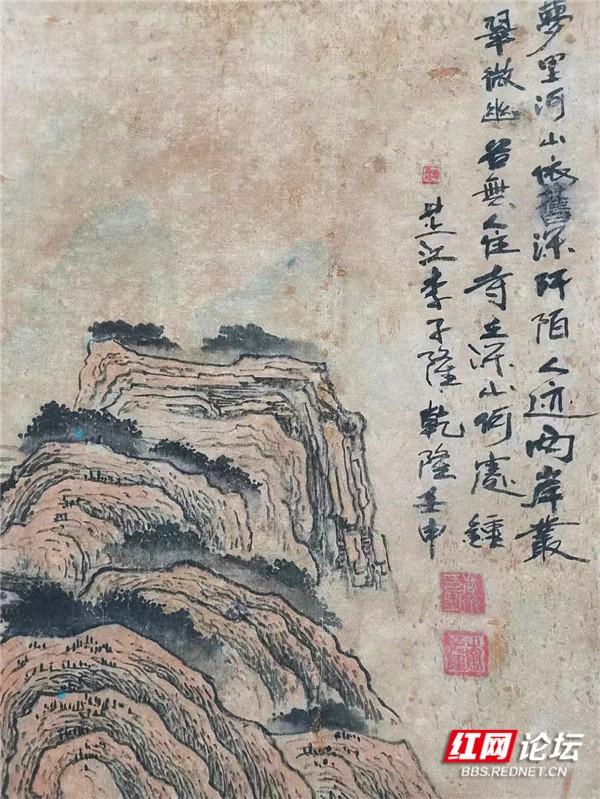 夢里河山依舊深阡陌人迹两岸叢
翠微幽谷無人住寺在深山何處鐘
芷江李子隆乾隆壬申
红网论坛
BBS.REDNET.CN